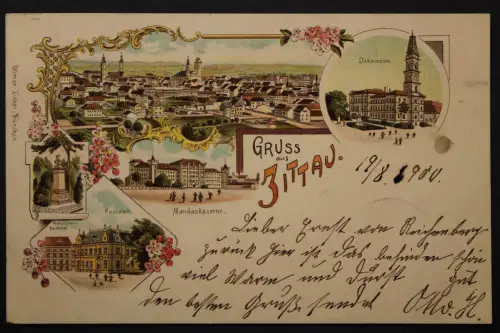 Johanneum.
GRUSS
aus
ZITTAU.
19/8. 1900.
Mandaukaserne.
Postamt.
Denkmal
Lieber Ernst von Reichenberg
zurück hier ist das
viel Warm und Durst gut
den besten Gruß sendet Otto. H.